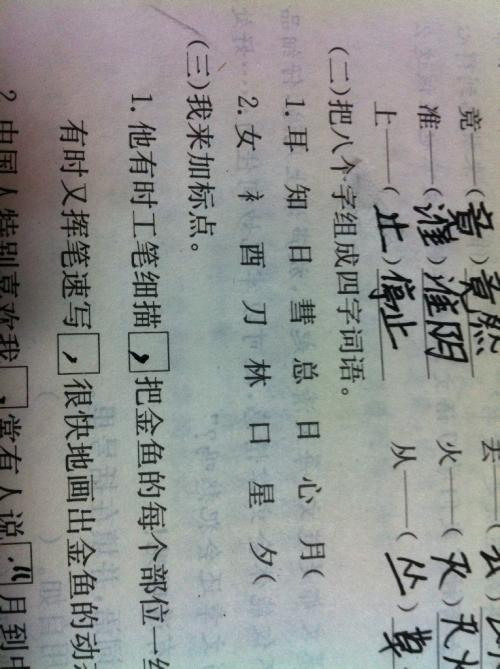 竞——(竟)竟然 丢——(
准——(淮)淮阴 火——(灭)灭火
上——(止)停止 从——(丛)草
(二)把八个字组成四字词语。
1. 耳 知 日 彗 总 日 心 月(
2. 女 衤 酉 刀 林 口 星 夕(
(三)我来加标点。
1. 他有时工笔细描,把金鱼的每个部位一
有时又挥笔速写,很快地画出金鱼的动
2. 中国人特别喜欢我,常有人说:“月到中